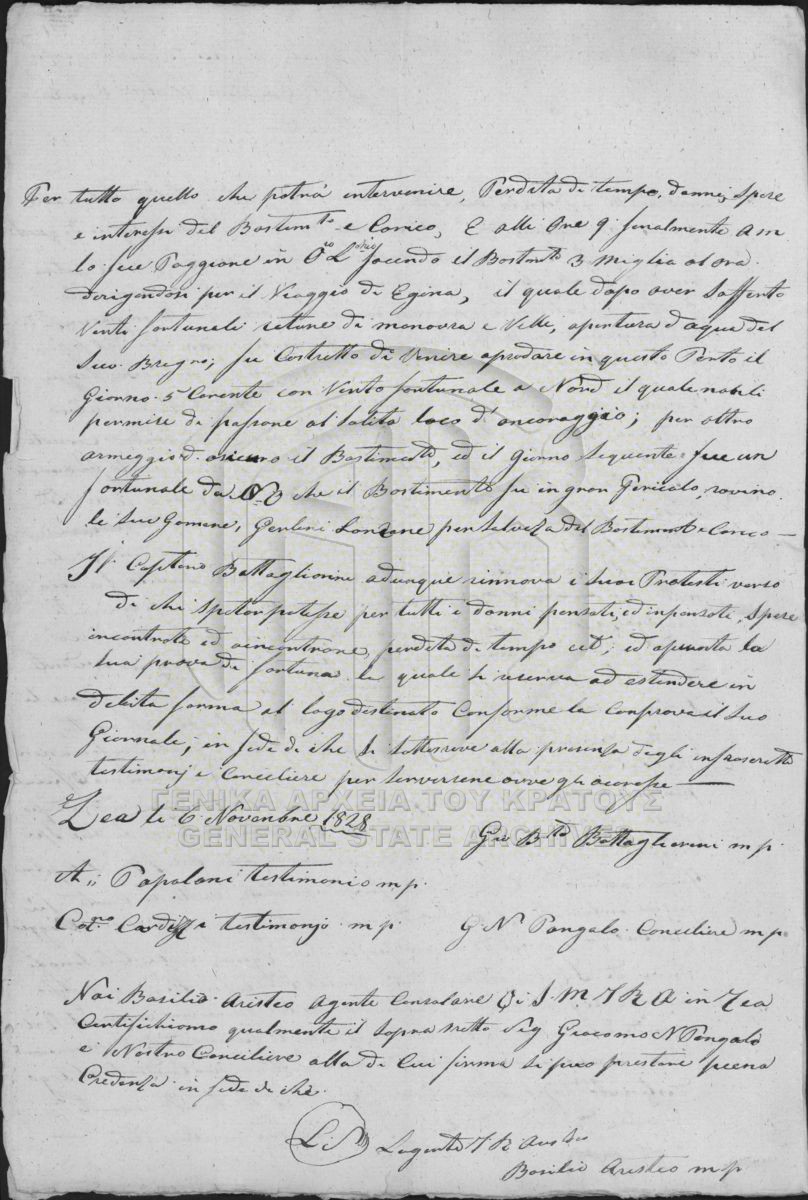 Per tutto quello che potrà intervenire, Perdita di tempo, danni, Spese
e interessi del Bastimto e Carico, E alli Ore 9 finalmente
lo fece Poggione in facendo il Bastimto 3 Miglia al ora
dirigendosi per il Viaggio di Egina, il quale dapo aver Soffento
Venti fortunali di manovra e Velle, apertura d'aque del
Suo Bregno; fu Costretto di Venire aprodare in questo Porto il
Giorno 5 Corente con Vento fortunale a Nord il quale
permise di passare al Solito loco d'ancoraggio; per altro
armeggio d. asicuro il Bastimento, ed il Giorno Sequente fue un
fortunale da che il Bastimento fu in gran Pericolo, rovino
le Sue Gomene, Gerlini per Salveza del Bastimento e Carico —
Il Capitano Battagliarini adunque rinnova i Suoi Protesti verso
di chi Spetar potesse per tutti i danni pensati, ed inpensati, Spese
incontrate ed aincontrare, perdita di tempo ed apunta la
Sua prova di fortuna la quale Si riserva ad estendere in
debita forma al logo destinato Conforme la Conprova il Suo
Giornale; in fede di che Si Sottoscrove alla presenza degli infrascritti
testimonj e Conceliere per Serversene ove gli acorese —
Zea le 6 Novenbre 1828
Gio Bta Battagliarini m p.
A ;; Papalani testimonio m p.
testimonjo m p.
G N Pangalo Conceliere m p.
Noi Basilio Aristeo Agente Consolare Di S. M. I R A in Zea
Certifichiamo qualmente il Sopra Sig Giacomo N Pangalo
e Nostro Conceliere alla di Cui firma Si puo prestare piena
Credenza in fede di che.
L S Lagente I R
Basilio Aristeo m p
ΓΕΝΙΚΑ ΑΡΧΕΙΑ ΤΟΥ ΚΡΑΤΟΥΣ
GENERAL STATE ARCHIVES